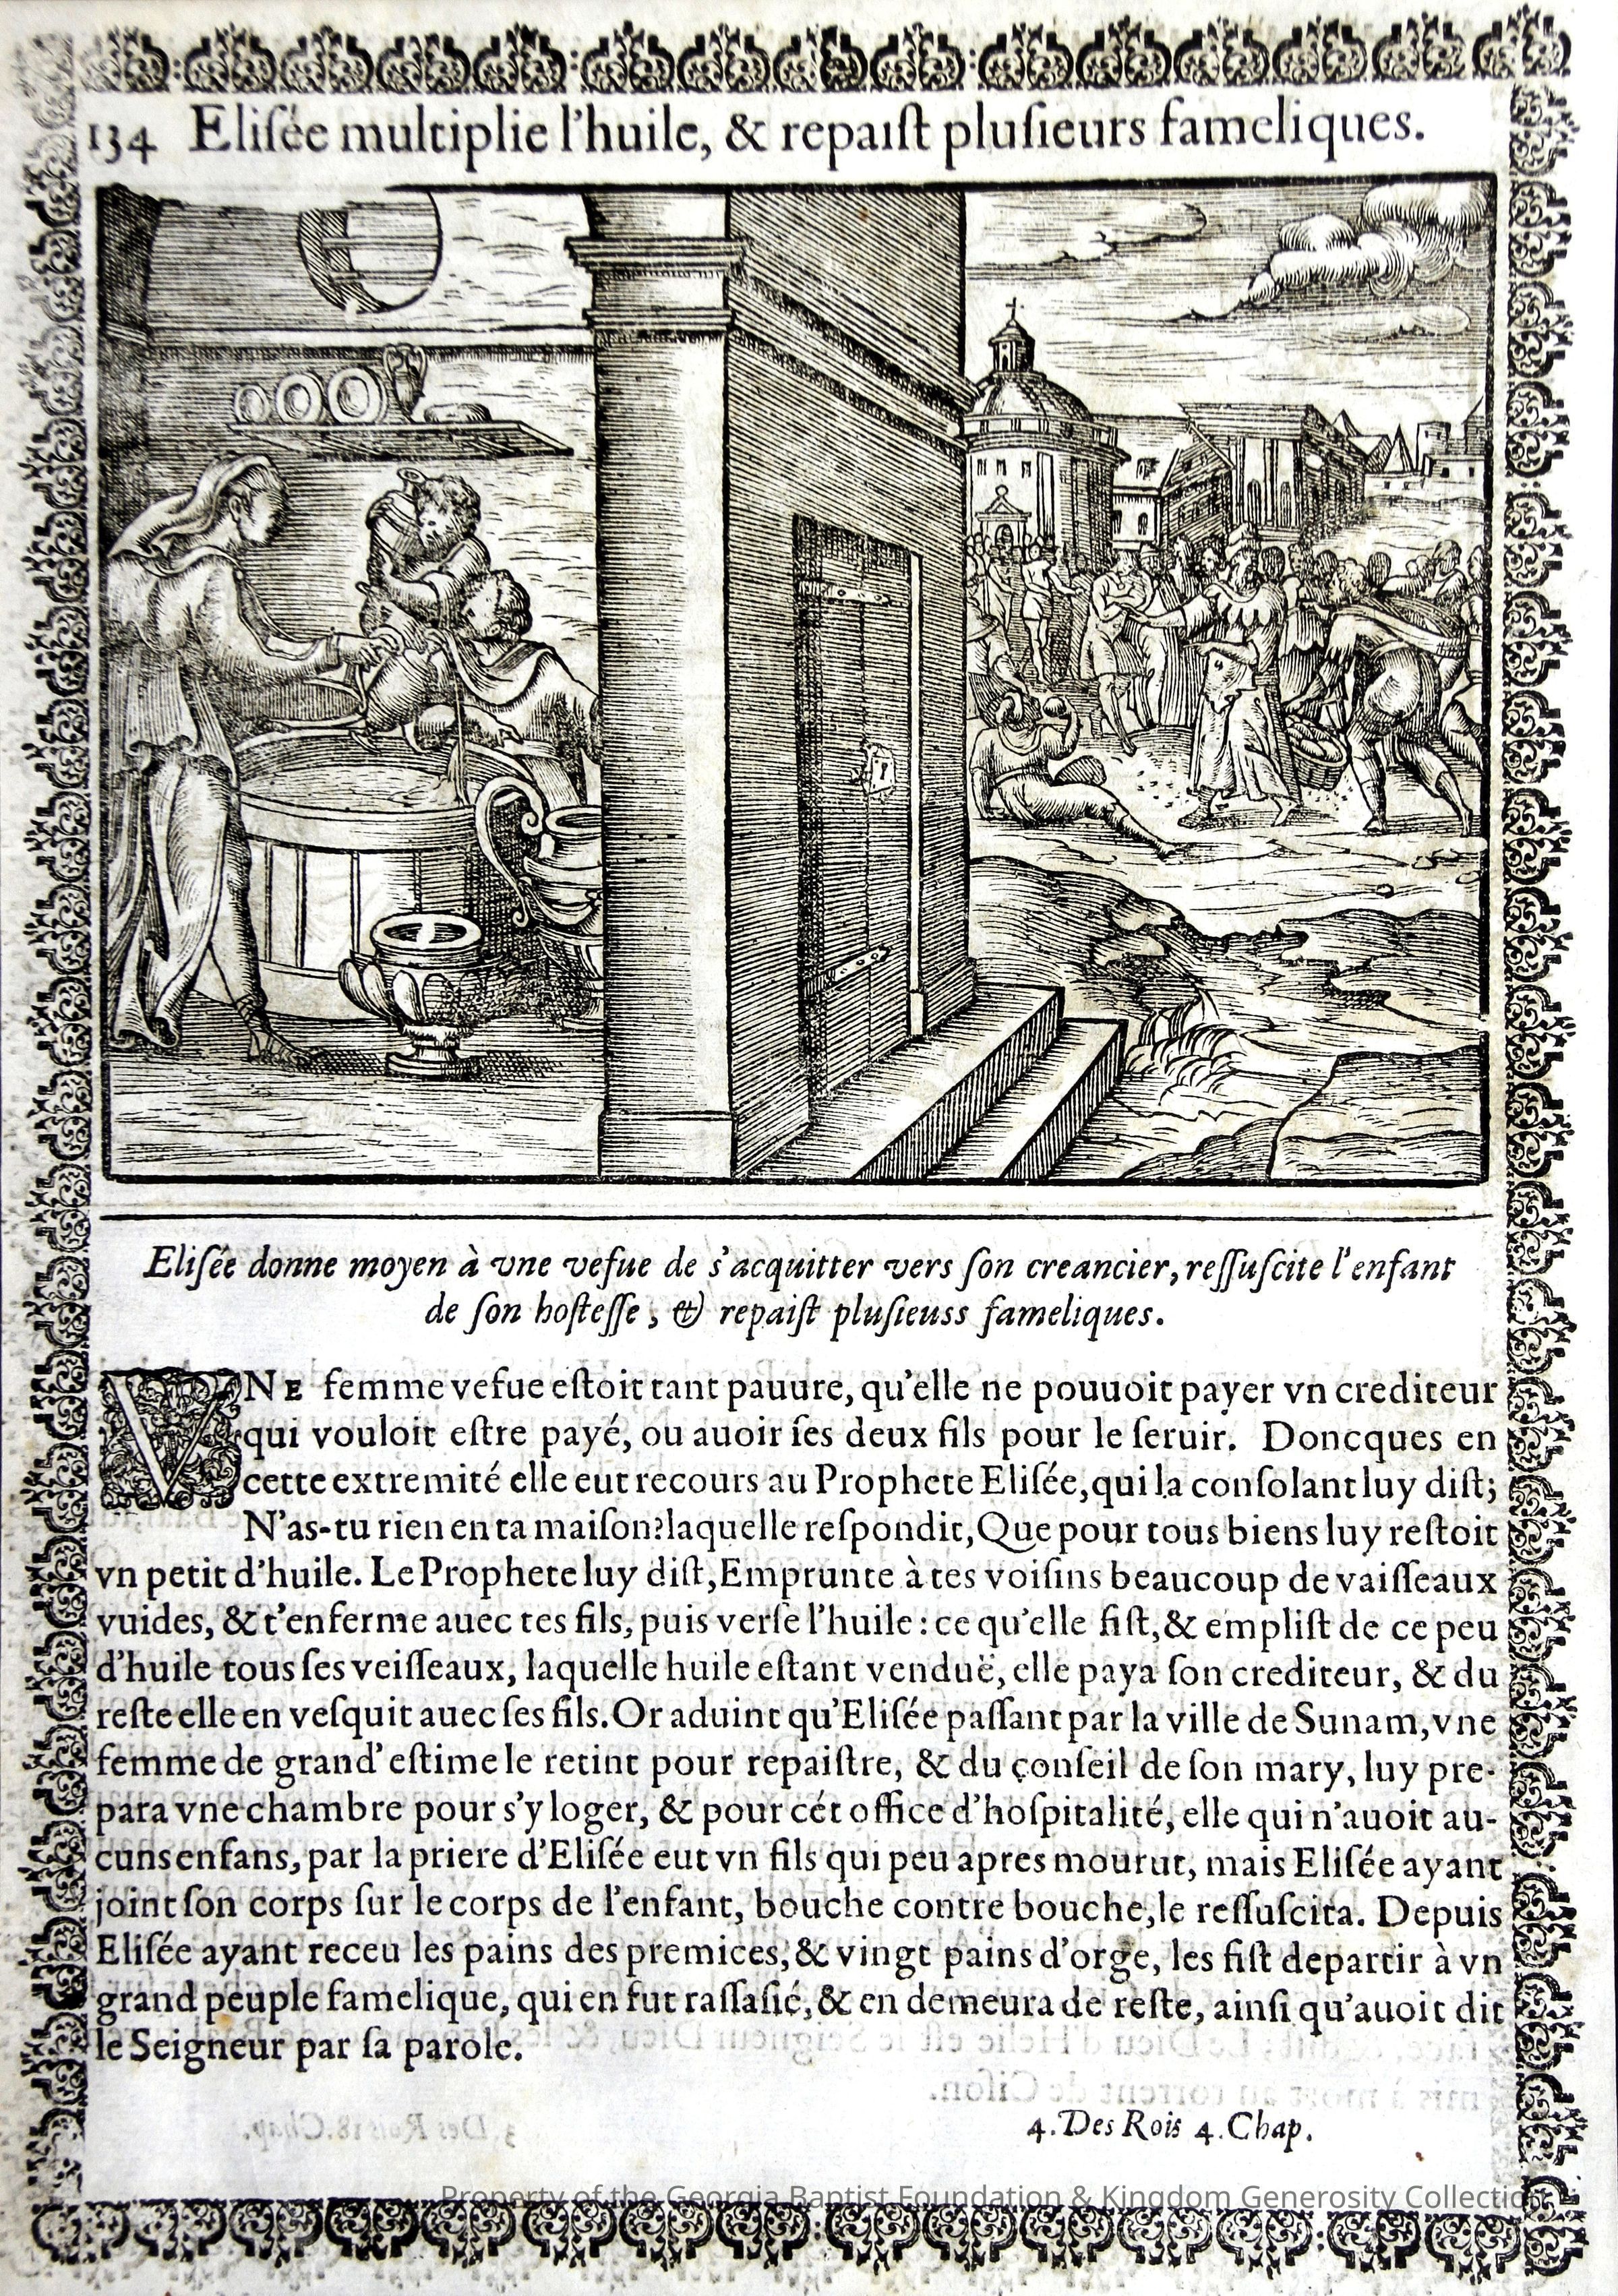 134 Eliſée multiplie l'huile, & repaiſt pluſieurs fameliques.
Eliſée donne moyen à vne vefue de s'acquitter vers ſon creancier, reſſuſcite l'enfant
de ſon hoſteſſe, & repaiſt pluſieuss fameliques.
VNE femme vefue eſtoit tant pauure, qu'elle ne pouuoit payer vn crediteur
qui vouloit eſtre payé, ou auoir ſes deux fils pour le ſeruir. Doncques en
cette extremité elle eut recours au Prophete Eliſée, qui la conſolant luy diſt;
N'as-tu rien en ta maiſon? laquelle reſpondit, Que pour tous biens luy reſtoit
vn petit d'huile. Le Prophete luy diſt, Emprunte à tes voiſins beaucoup de vaiſſeaux
vuides, & t'enferme auec tes fils, puis verſe l'huile : ce qu'elle fiſt, & empliſt de ce peu
d'huile tous ſes veiſſeaux, laquelle huile eſtant venduë, elle paya ſon crediteur, & du
reſte elle en veſquit auec ſes fils. Or aduint qu'Eliſée paſſant par la ville de Sunam, vne
femme de grand' eſtime le retint pour repaiſtre, & du conſeil de ſon mary, luy pre-
para vne chambre pour s'y loger, & pour cét office d'hoſpitalité, elle qui n'auoit au-
cuns enfans, par la priere d'Eliſée eut vn fils qui peu apres mourut, mais Eliſée ayant
joint ſon corps ſur le corps de l'enfant, bouche contre bouche, le reſſuſcita. Depuis
Eliſée ayant receu les pains des premices, & vingt pains d'orge, les fiſt departir à vn
grand peuple famelique, qui en fut raſſaſié, & en demeura de reſte, ainſi qu'auoit dit
le Seigneur par ſa parole.
4. Des Rois 4. Chap.
Property of the Georgia Baptist Foundation & Kingdom Generosity Collection